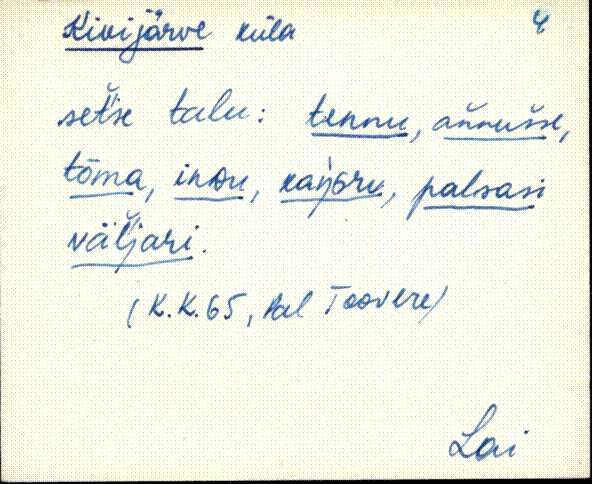 Kivijärve küla 4
set̆se talu: tennu, an̆nus̆se,
tōma, insu, kaŋGru, palsasi
väl̆jari.
(K.K.65, Toovere)
Lai